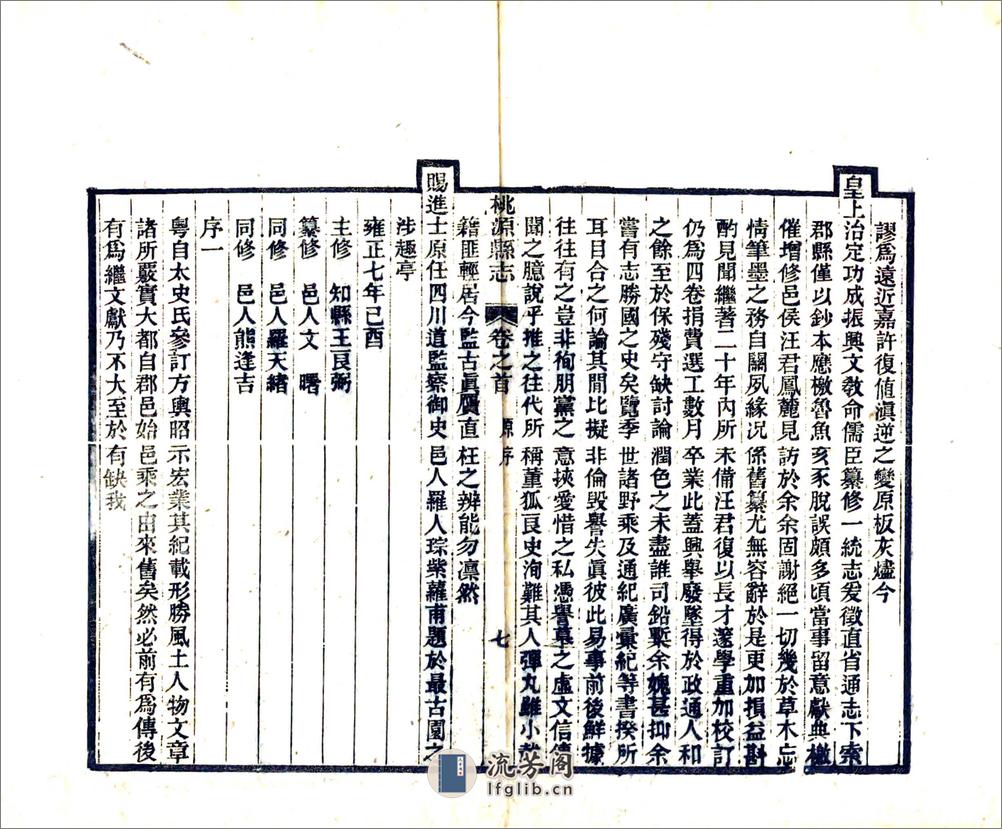 謬爲遠近嘉許復値滇逆之變原板灰燼今
皇上治定功成振興文敎命儒臣纂修一統志爰徵直省通志下索
郡縣僅以鈔本應檄魯魚亥豕脫誤頗多頃當事留意獻典檄
催增修邑侯汪君鳳麓見訪於余余固謝絕一切幾於草木忘
情筆墨之務自關夙緣况係舊纂尤無容辭於是更加損益斟
酌見聞繼著二十年內所未備汪君復以長才邃學重加校訂
仍爲四卷捐費選工數月卒業此蓋興舉廢墜得於政通人和
之餘至於保殘守缺討論潤色之未盡誰司鉛槧余媿甚抑余
嘗有志勝國之史矣覽季世諸野乘及通紀廣彙紀等書揆所
耳目合之何論其間比擬非倫毀譽失眞彼此易事前後鮮據
往往有之豈非徇朋黨之意挾愛惜之私憑譽草之虛文信傳
聞之臆說乎推之往代所稱董狐良史洵難其人彈丸雖小載
籍匪輕居今監古眞贋直枉之辨能勿凛然
賜進士原任四川道監察御史邑人羅人琮紫蘿甫題於最古園之
涉趣亭
雍正七年己酉
主修　知縣王良弼
纂修　邑人文　曙
同修　邑人羅天緖
同修　邑人熊逢吉
序一
粤自太史氏參訂方輿昭示宏業其紀載形勝風土人物文章
諸所嚴實大都自郡邑始邑乘之由來舊矣然必前有爲傳後
有爲繼文獻乃不大至於有缺我
桃源縣志　卷之首　原序　七
流芳阁
lfglib.cn